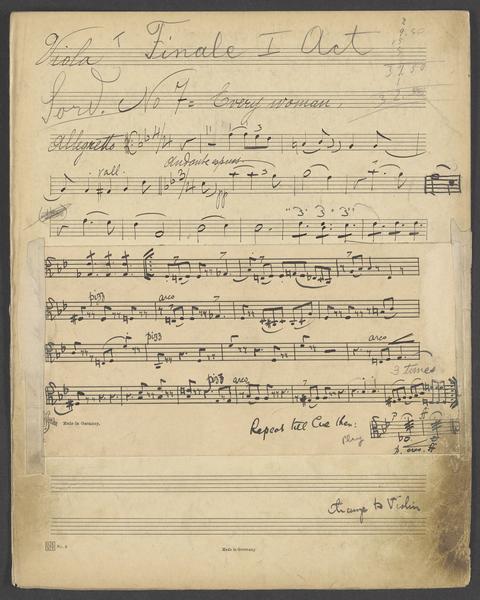 Viola I Finale I Act
9.50
39.50
Sord. No 7 = Every woman.
Allegretto
3
rall. Andante
pp
3 3 3
pizz arco
pizz arco
3 times
pizz arco
Made in Germany.
Repeat till Cue then:
Play
change to Violin
No. 2
Made in Germany